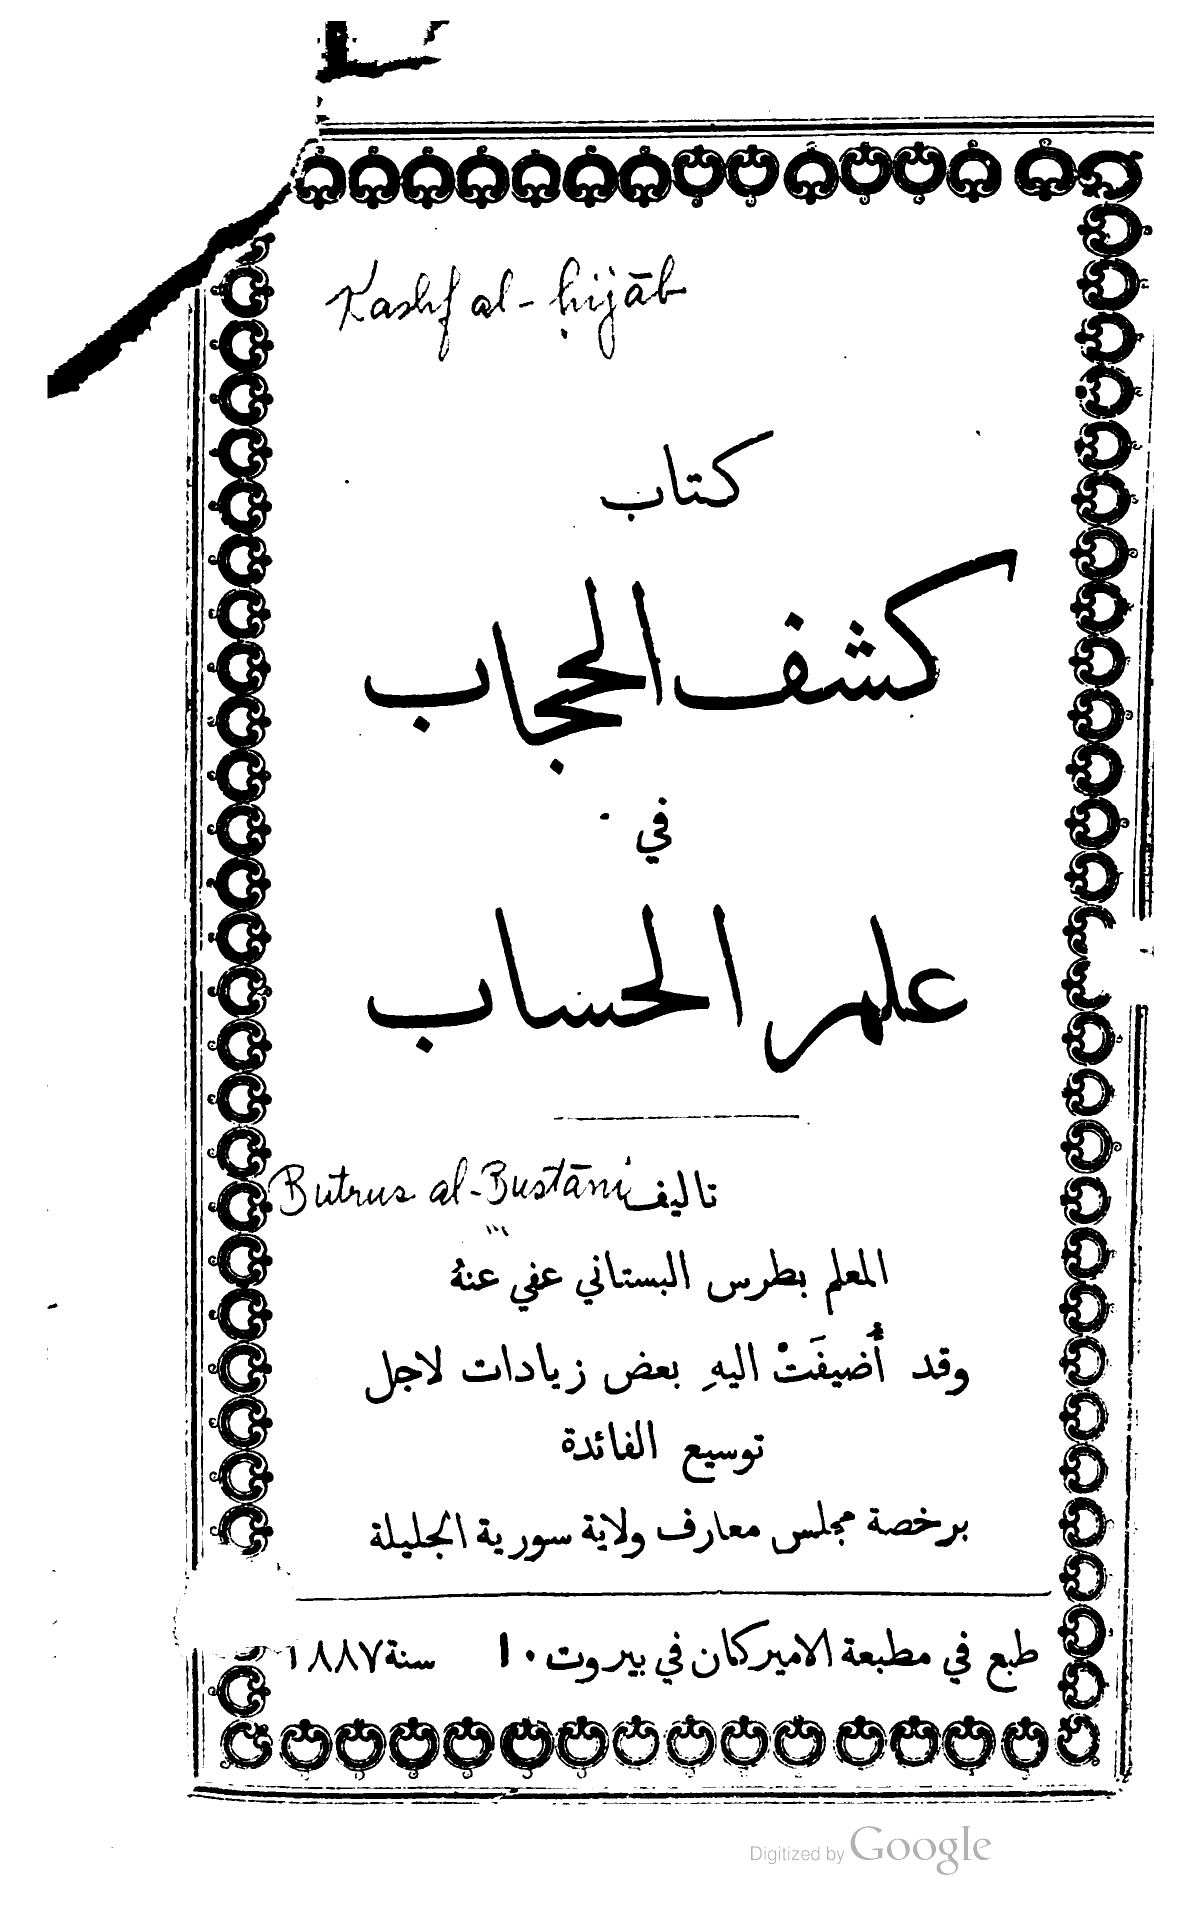 Kashf al-ḥijāb
كتاب
كشف الحجاب
في
علم الحساب
تاليف Butrus al-Bustāni
المعلم بطرس البستاني عفي عنهُ
وقد أُضيفَتْ اليهِ بعض زيادات لاجل
توسيع الفائدة
برخصة مجلس معارف ولاية سورية الجليلة
طبع في مطبعة الاميركان في بيروت ١٠ سنة ١٨٨٧
Digitized by Google